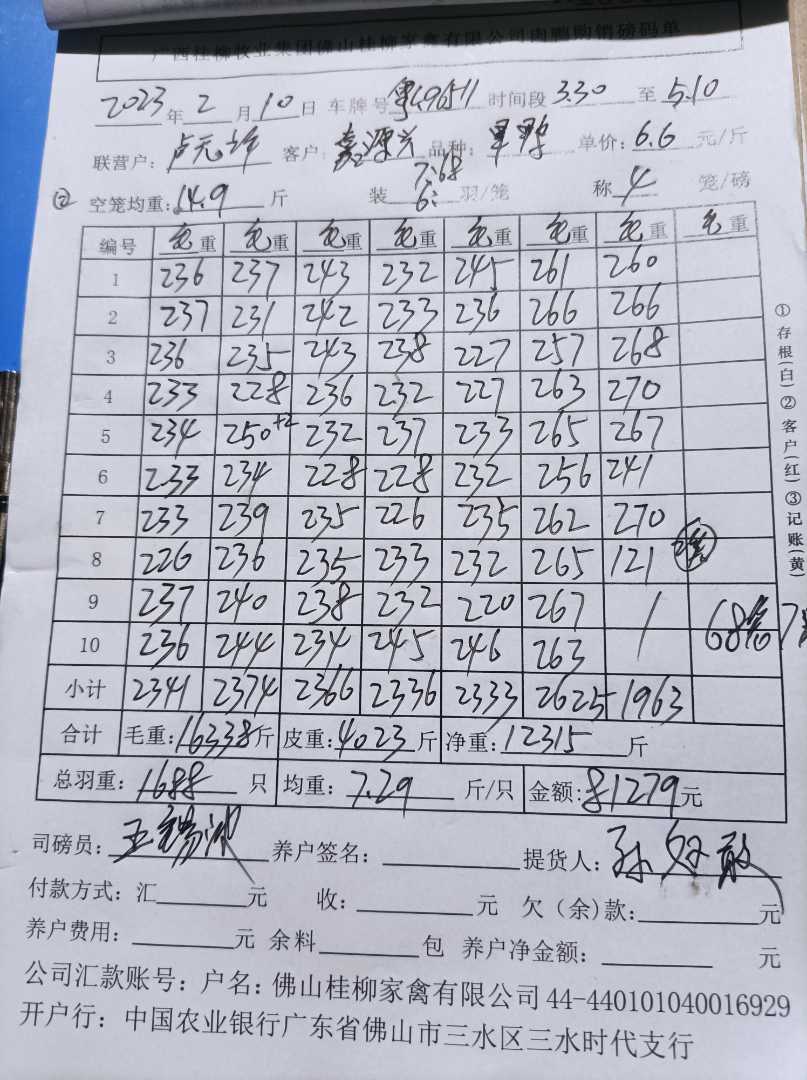 广西桂柳牧业集团佛山桂柳家禽有限公司肉鸭购销磅码单
2023年2月10日 车牌号 粤L96511 时间段 3.30 至 5.10
联营户: 卢元 客户: 鑫源兴 品种: 单价: 6.6 元/斤
7:68
② 空笼均重: 14.9 斤 装 6: 羽/笼 称 4 笼/磅
编号 毛重 毛重 毛重 毛重 毛重 毛重 毛重 毛重
1 236 237 243 232 245 261 260
2 237 231 242 233 236 266 266
3 236 235 243 238 227 257 268
4 233 228 236 232 227 263 270
5 234 250+2 232 237 233 265 267
6 233 234 228 228 232 256 241
7 233 239 235 226 235 262 270
8 226 236 235 233 232 265 121 2笼
9 237 240 238 232 220 267 / 68笼7
10 236 244 234 245 246 263
小计 2341 2374 2366 2336 2333 2625 1963
合计 毛重: 16338斤 皮重: 4023斤 净重: 12315斤
总羽重: 1688 只 均重: 7.29 斤/只 金额: 81279元
司磅员: 王锡 养户签名: 提货人: 孙
付款方式: 汇 元 收: 元 欠(余)款: 元
养户费用: 元 余料 包 养户净金额: 元
公司汇款账号: 户名: 佛山桂柳家禽有限公司 44-440101040016929
开户行: 中国农业银行广东省佛山市三水区三水时代支行
①存根(白)②客户(红)③记账(黄)